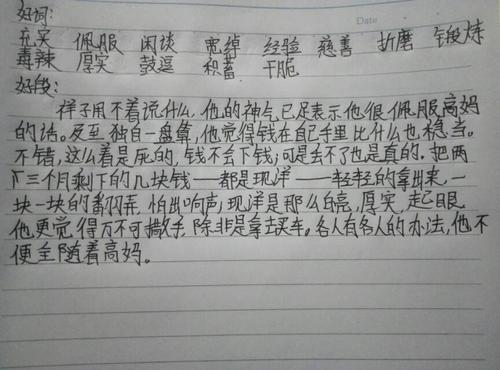 好词:
Date
充实 佩服 闲谈 宽绰 经验 慈善 折磨 锻炼
毒辣 厚实 鼓逗 积蓄 干脆
好段:
样子用不着说什么,他的神气已足表示他很佩服高妈
的话。及至独自一盘算,他觉得钱在自己手里比什么也稳当。
不错,这么着是死的,钱不会下钱;可是丢不了也是真的。把两
三个月剩下的几块钱——都是现洋——轻轻的拿出来,一
块一块的翻弄,怕出响声;现洋是那么白亮,厚实,起眼
他更觉得万不可撒手,除非是拿去买车。各人有各人的办法,他不
便全随着高妈。